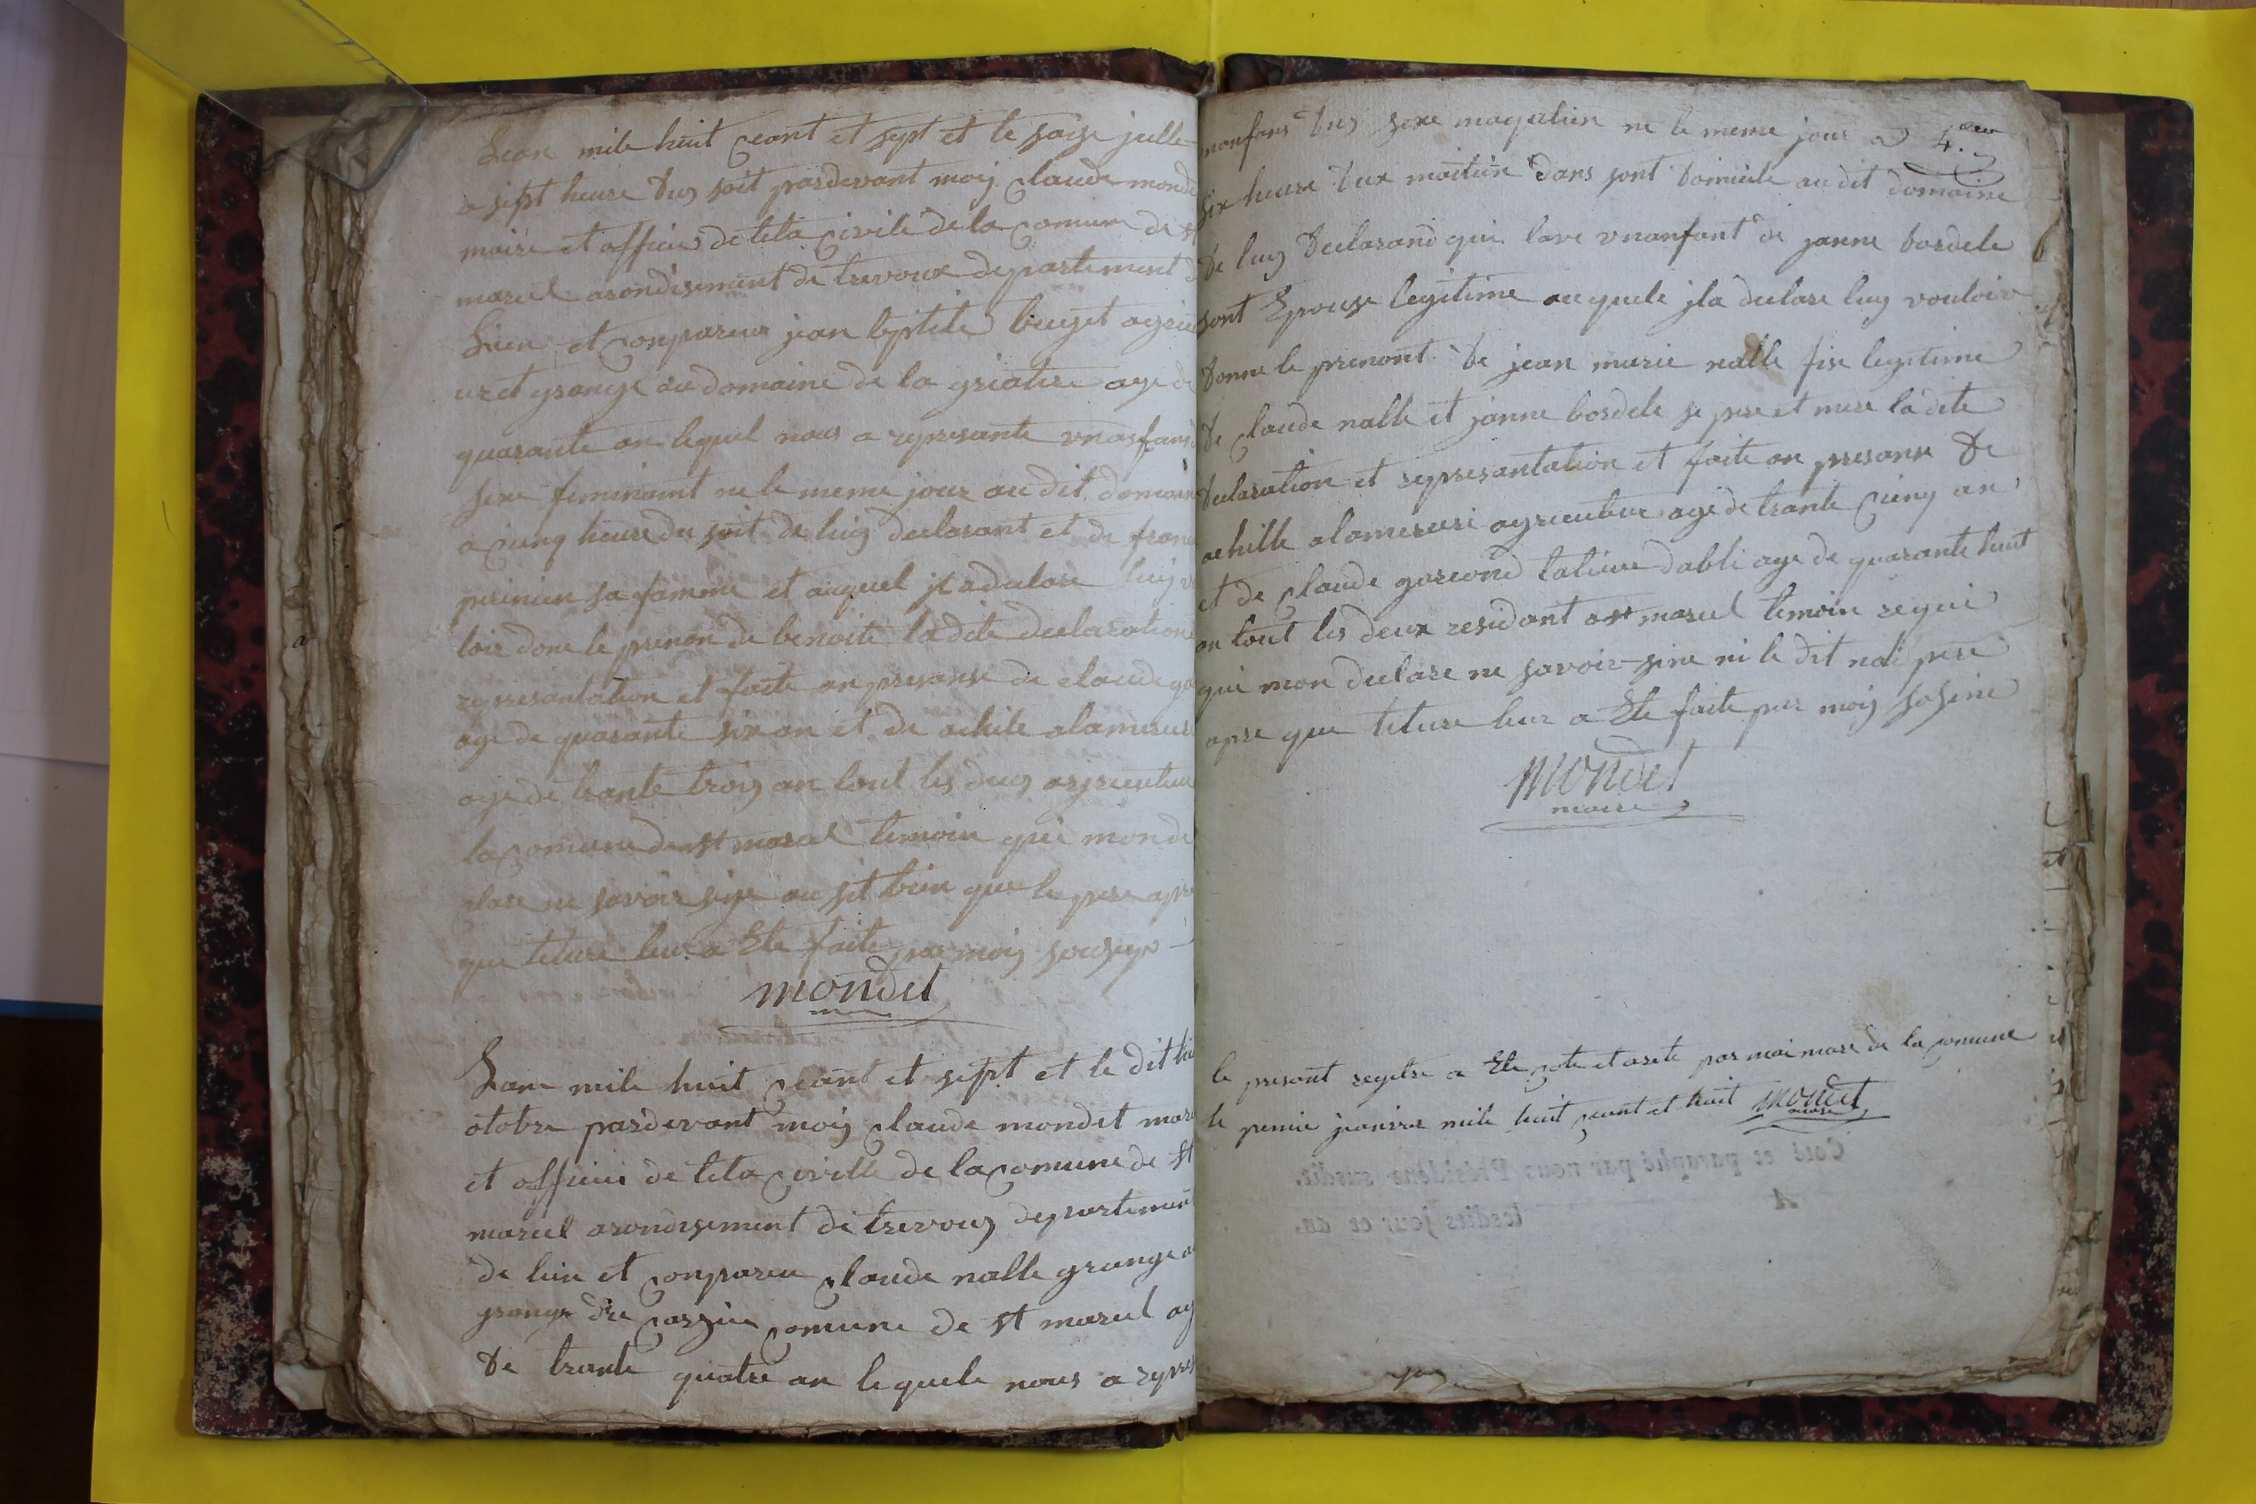 Lean mile huit ceant et sept et le saize juille
a sept heure dus soit pardevant moij claude monde
maire et officies de leta civile de la comune de st
marcel arondisement de trevoux departement d
Lien et conpareus jean bptite buget agricu
urct grange au domaine de la griatiere age de
quarante an lequel nous a represante vnanfans
sexe feminimt ne le meme jour au dit domaine
a cinq heure du soit de luij declarant et de franc
perinien sa famme et auquel jl adeclare luij v
loir done le prenon de benoite la dite declaration
represantation et faite an presanse de claude ga
age de quarante six an et de achile alamercer
age de trante trois an tout les deus agrieulture
la comune de st marcel temoin qui mon de
clare ne savoir sige au sit bien que le pere apre
que leture leur a Ete faite par moij sousige
mondet
Lane mile huit ceant et sept et le dit hui
otobre pardevant moij claude mondet mare
et officier de leta civille de la comune de st
marcel arondisement de trevous departement
de lein et conpareu claude nalle grange a
grange du comune de st marcel ag
de trante quatre an le quele nous a repres
nanfans dus sexe maqulien ne le meme jour a 4.
six heure deux maitien dans sont domicile au dit domaine
de luij declarand qui lave vnanfant de janne bordele
sont Epouse legitime auquele jla declare luij vouloir
donne le prenont de jean marie nalle fise legitime
de claude nalle et janne bordele se pere et mere la dite
declaration et represantation et faite an presanse de
achille alamerceri agriculture age de trante cienq an
et de claude garcond talieure dabli age de quarante huit
an tout les deux residant a st marcel temoin requi
qui mon declare ne savoir sine ni le dit nali pere
apre que leture leur a Ete faite par moij sosine
mondet
maire
le presant regitre a Ete cote et arete par moi mare de la comune
le premie jeanvie mile huit ceant et huit mondet
maire
Coté et paraphé par nous Président susdit.
A
lesdits jour et an.